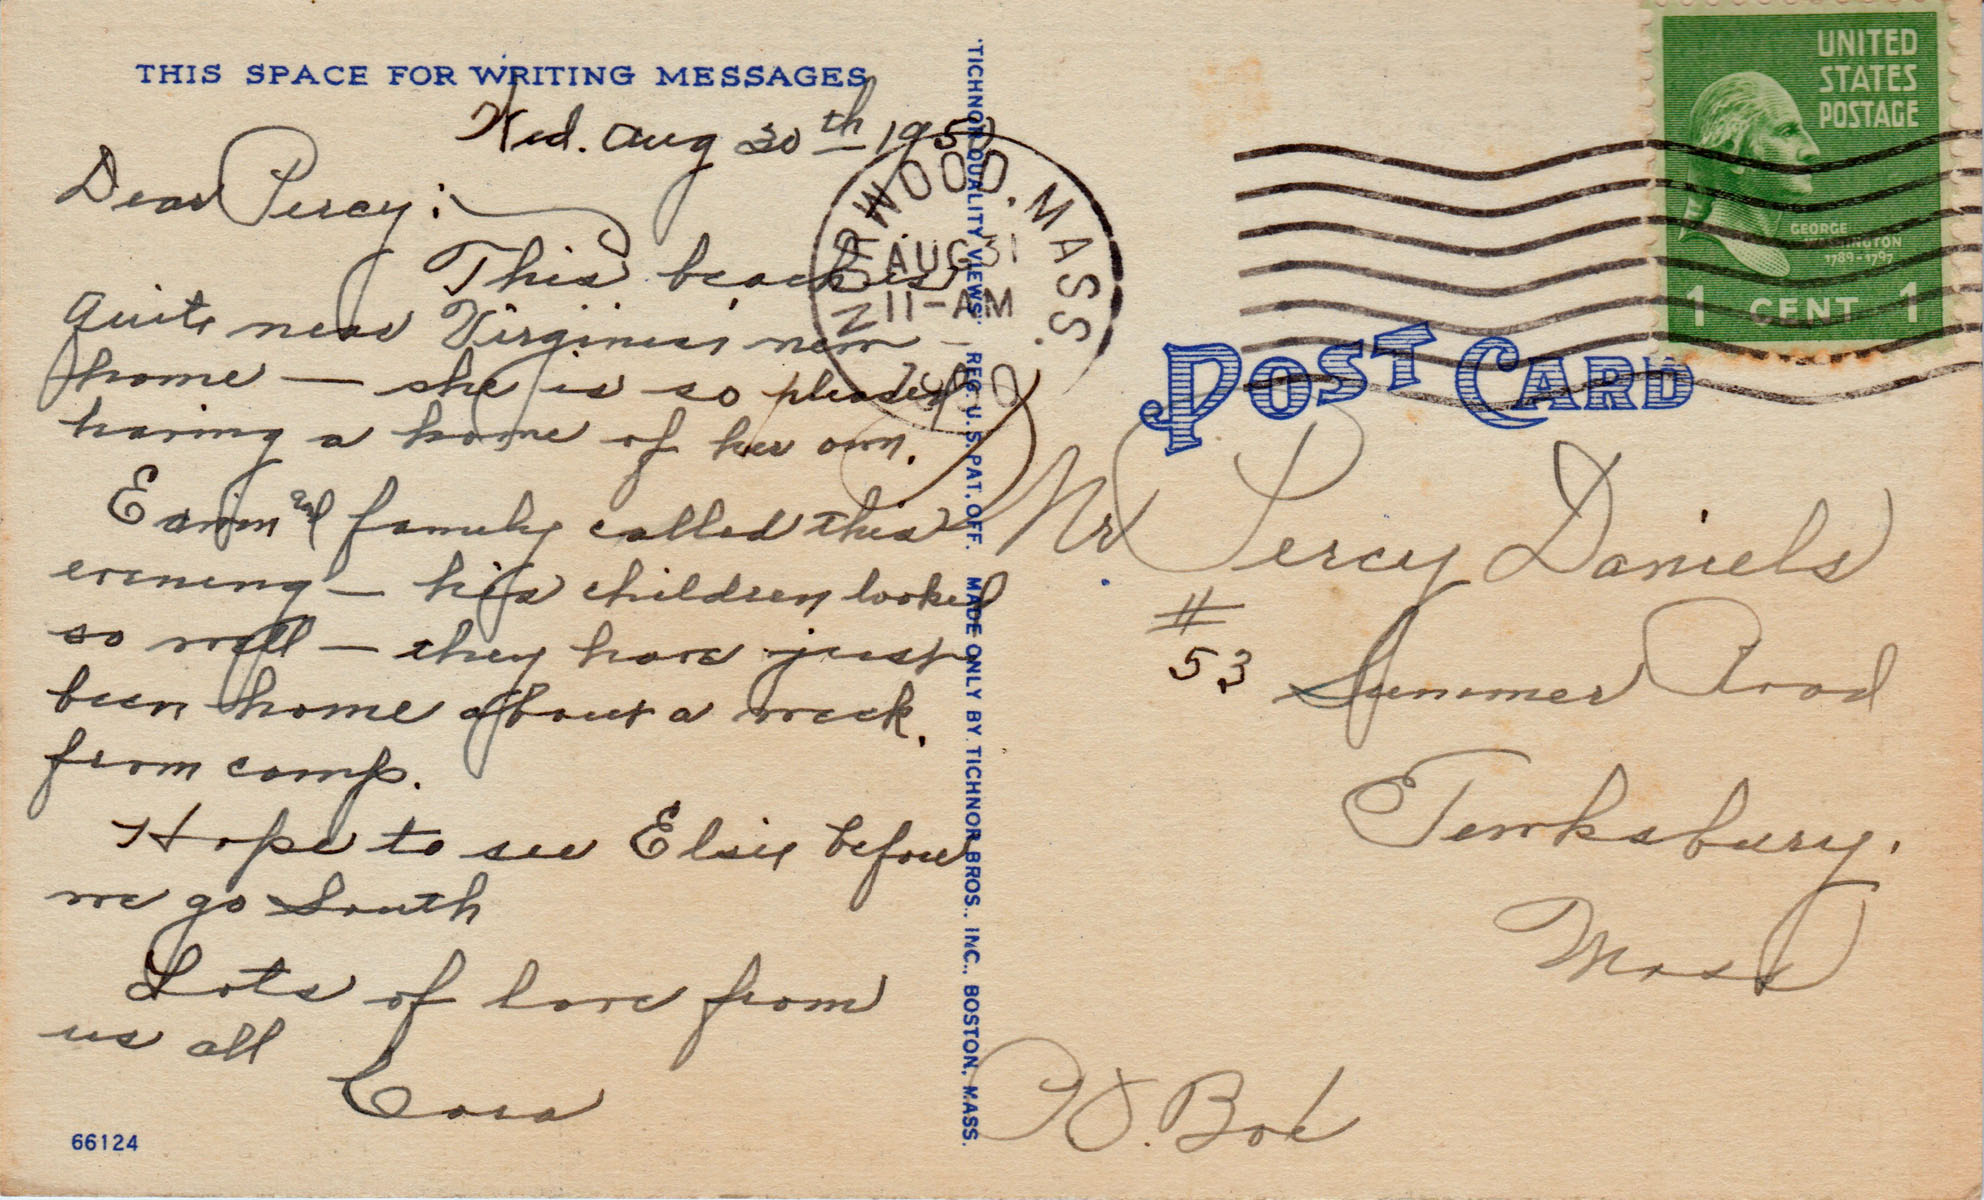 THIS SPACE FOR WRITING MESSAGES
Wed. Aug 30th 1950
Dear Percy:
This beach is
quite near Virginia's new
home — she is so pleased
having a home of her own.
Edwin and family called this
evening — his children looked
so well — they have just
been home about a week.
from camp.
Hope to see Elsie before
we go South
Lots of love from
us all
Cora
66124
"TICHNOR QUALITY VIEWS," REG. U. S. PAT. OFF. MADE ONLY BY TICHNOR BROS., INC., BOSTON, MASS.
NORWOOD, MASS.
AUG 31
11-AM
1950
UNITED
STATES
POSTAGE
GEORGE
WASHINGTON
1789-1797
1 CENT 1
POST CARD
Mr Percy Daniels
#
53 Summer Road
Tewksbury.
Mass
P.O. Box